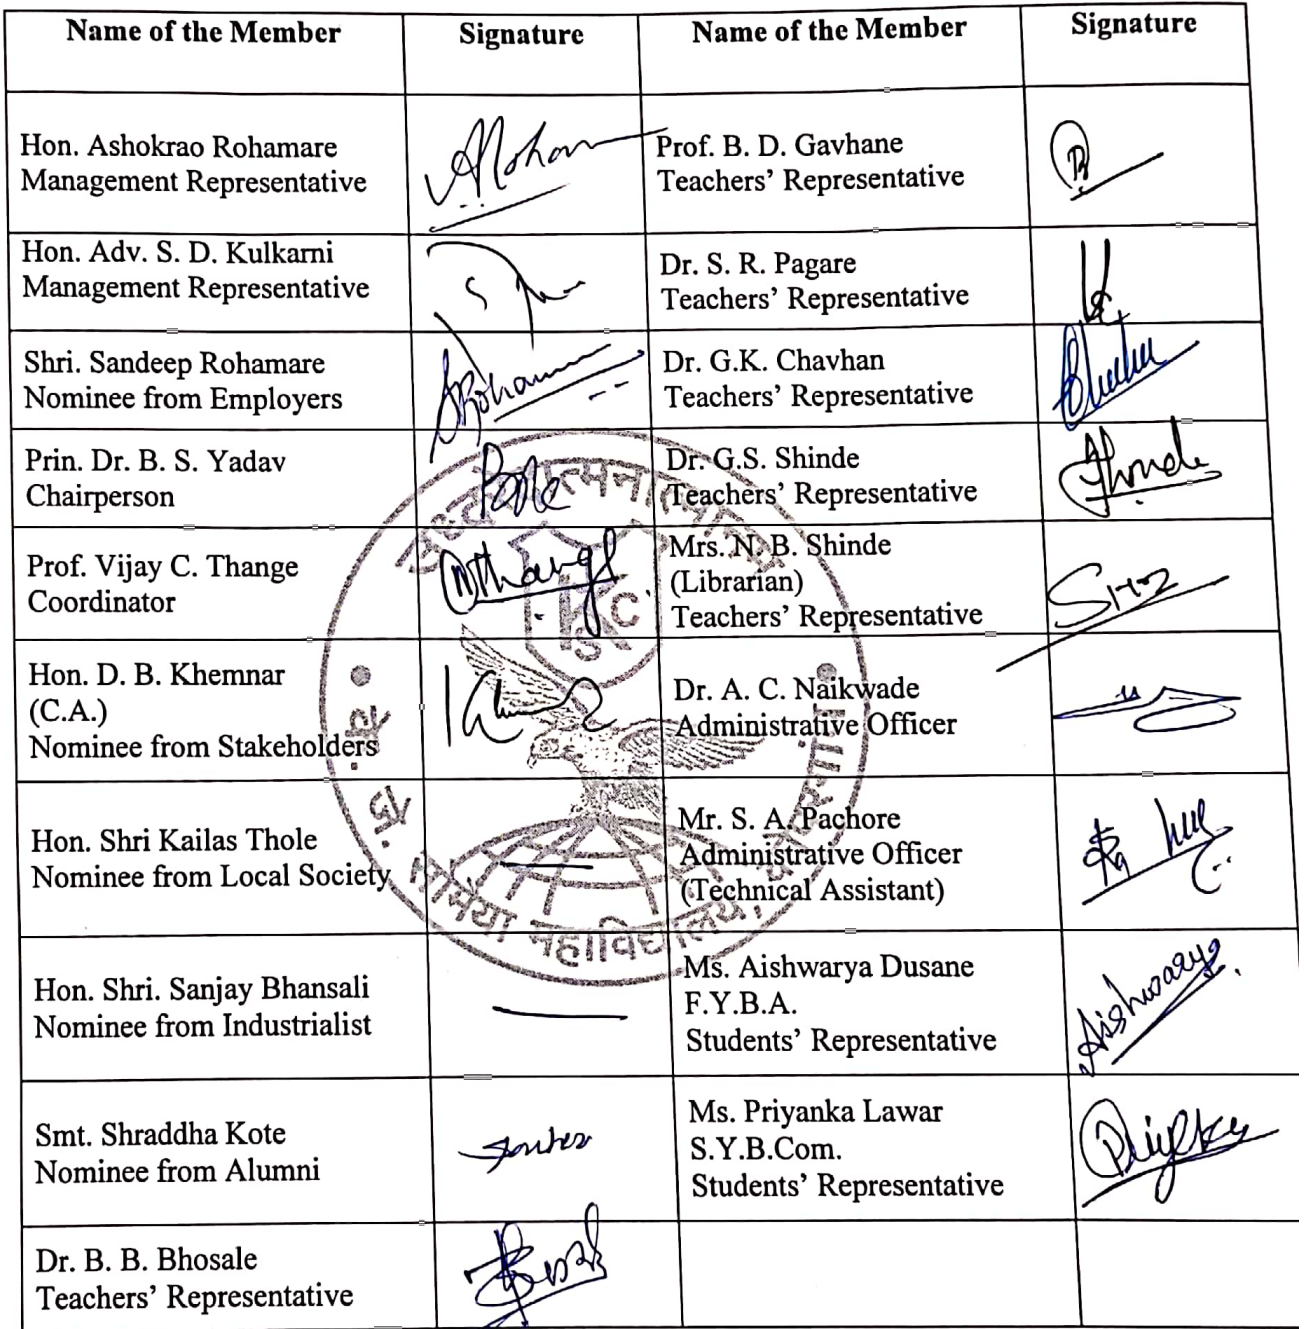 Name of the Member Signature Name of the Member Signature
Hon. Ashokrao Rohamare
Management Representative
Prof. B. D. Gavhane
Teachers’ Representative
Hon. Adv. S. D. Kulkarni
Management Representative
Dr. S. R. Pagare
Teachers’ Representative
Shri. Sandeep Rohamare
Nominee from Employers
Dr. G.K. Chavhan
Teachers’ Representative
Prin. Dr. B. S. Yadav
Chairperson
Dr. G.S. Shinde
Teachers’ Representative
Prof. Vijay C. Thange
Coordinator
Mrs. N. B. Shinde
(Librarian)
Teachers’ Representative
Hon. D. B. Khemnar
(C.A.)
Nominee from Stakeholders
Dr. A. C. Naikwade
Administrative Officer
Hon. Shri Kailas Thole
Nominee from Local Society
Mr. S. A. Pachore
Administrative Officer
(Technical Assistant)
Hon. Shri. Sanjay Bhansali
Nominee from Industrialist
Ms. Aishwarya Dusane
F.Y.B.A.
Students’ Representative
Aishwarya
Smt. Shraddha Kote
Nominee from Alumni
Ms. Priyanka Lawar
S.Y.B.Com.
Students’ Representative
Dr. B. B. Bhosale
Teachers’ Representative
महाविद्यालय,